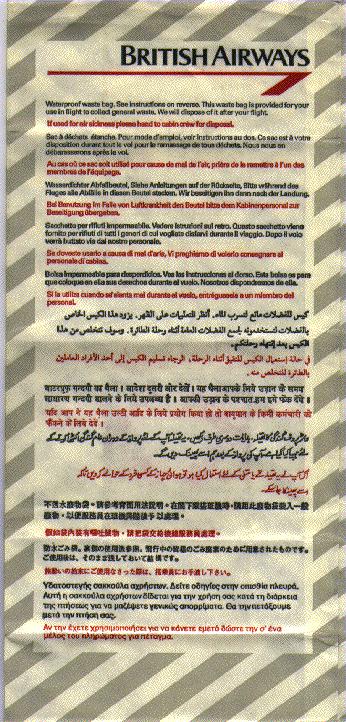 BRITISH AIRWAYS
Waterproof waste bag. See instructions on reverse. This waste bag is provided for your
use in flight to collect general waste. We will dispose of it after your flight.
If used for air sickness please hand to cabin crew for disposal.
Sac à déchets étanche. Pour mode d'emploi, voir instructions au dos. Ce sac est à votre
disposition durant tout le vol pour le ramassage de tous déchets. Nous nous en
débarasserons après le vol.
Au cas où ce sac soit utilisé pour cause de mal de l'air, prière de le remettre à l'un des
membres de l'équipage.
Wasserdichter Abfallbeutel. Siehe Anleitungen auf der Rückseite. Bitte während des
Fluges alle Abfälle in diesen Beutel stecken. Wir beseitigen ihn dann nach der Landung.
Bei Benutzung im Falle von Luftkrankheit den Beutel bitte dem Kabinenpersonal zur
Beseitigung übergeben.
Sacchetto per rifiuti impermeabile. Vedere istruzioni sul retro. Questo sacchetto viene
fornito per rifiuti di tutti i generi di cui vogliate disfarvi durante il viaggio. Dopo il volo
verrà buttato via dal nostro personale.
Se doveste usarlo a causa di mal d'aria, Vi preghiamo di volerlo consegnare al
personale di cabina.
Bolsa impermeable para desperdicios. Vea las instrucciones al dorso. Esta bolsa es para
que coloque en ella sus desechos durante el vuelo. Nosotros dispondremos de ella.
Si la utiliza cuando se sienta mal durante el vuelo, entréguesela a un miembro del
personal.
كيس للفضلات مانع لتسرب الماء. أنظر التعليمات على الظهر. يزود هذا الكيس الخاص
بالفضلات لتستخدمونه بجمع الفضلات العامة أثناء رحلة الطائرة. وسوف نتخلص من هذا
الكيس بعد إنتهاء رحلتكم.
في حالة إستعمال الكيس للتقيؤ أثناء الرحلة، الرجاء تسليم الكيس إلى أحد الأفراد العاملين
بالطائرة للتخلص منه.
वाटरप्रूफ गन्दगी का थैला। आदेश दूसरी ओर देखें। यह थैला आपके लिये उड़ान के समय
साधारण गन्दगी डालने के लिये उपलब्ध है। आपकी उड़ान के पश्चात् हम इसे फेंक देंगे।
यदि आप ने यह थैला उल्टी आदि के लिये प्रयोग किया हो तो वायुयान के किसी कर्मचारी को
फेंकने के लिये दें।
不透水廢物袋。請參考背面用法説明。
防水ごみ袋。裏側の使用法参照。飛行中の普通のごみ廃棄のために用意されたものです。
ご使用後は、そのまま残しておいて結構です。
Υδατοστεγής σακκούλα αχρήστων. Δείτε οδηγίες στην οπισθία πλευρά.
Αυτή η σακκούλα αχρήστων δίδεται για την χρήση σας κατά τη διάρκεια
της πτήσεως για να μαζέψετε γενικώς απορρίματα. Θα την πετάξουμε
μετά την πτήση σας.
Αν την έχετε χρησιμοποιήσει για να κάνετε εμετό δώστε την σ' ένα
μέλος του πληρώματος για πέταγμα.